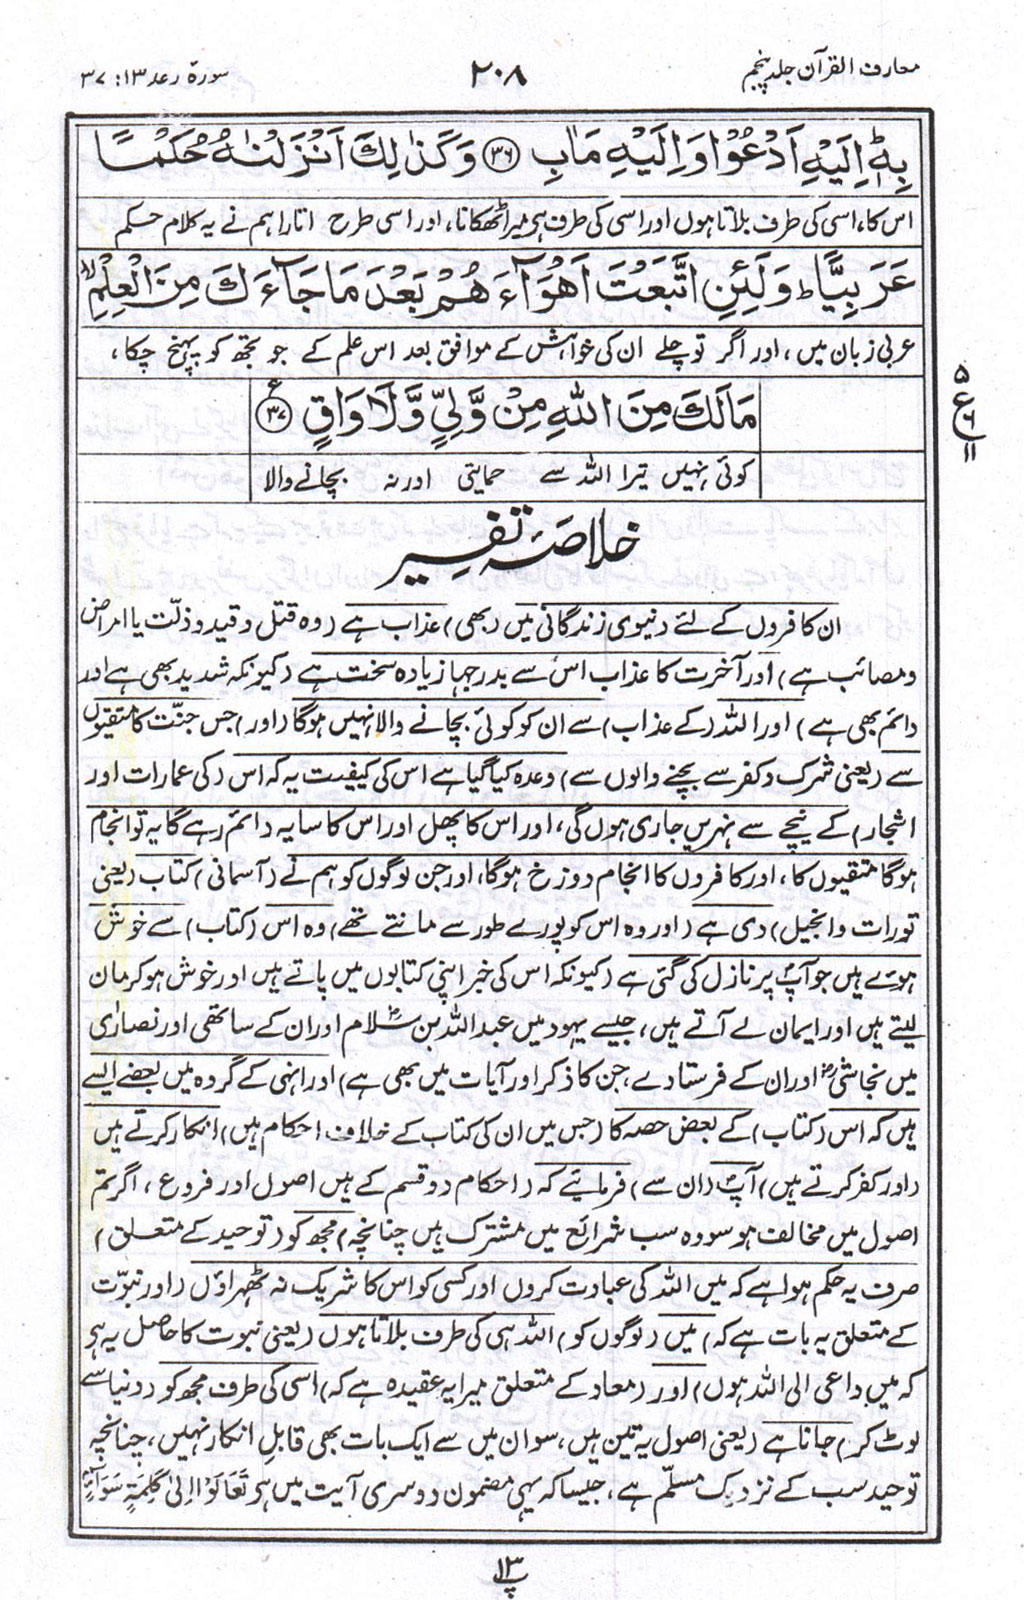 معارف القرآن جلد پنجم
۲۰۸
سورۃ رعد ۱۳: ۳۷
بِهٖ ؕ اِلَيْهِ اَدْعُوْا وَاِلَيْهِ مَاٰبِ ﴿۳۶﴾ وَكَذٰلِكَ اَنْزَلْنٰهُ حُكْمًا
اس کا، اسی کی طرف بلاتا ہوں اور اسی کی طرف ہی میرا ٹھکانا، اور اسی طرح اتارا ہم نے یہ کلام حکم
عَرَبِيًّا ؕ وَلَئِنِ اتَّبَعْتَ اَهْوَآءَهُمْ بَعْدَ مَا جَآءَكَ مِنَ الْعِلْمِ ۙ
عربی زبان میں، اور اگر تو چلے ان کی خواہش کے موافق بعد اس علم کے جو تجھ کو پہنچ چکا،
مَالَكَ مِنَ اللّٰهِ مِنْ وَّلِيٍّ وَّلَا وَاقٍ ﴿۳۷﴾ ع
۵
ع ۶
۱۱
کوئی نہیں تیرا اللہ سے حمایتی اور نہ بچانے والا
خلاصۂ تفسیر
ان کافروں کے لئے دنیوی زندگانی میں (بھی) عذاب ہے (وہ قتل و قید و ذلّت یا امراض
و مصائب ہے) اور آخرت کا عذاب اس سے بدرجہا زیادہ سخت ہے (کیونکہ شدید بھی ہے اور
دائم بھی ہے) اور اللہ (کے عذاب) سے ان کو کوئی بچانے والا نہیں ہوگا (اور) جس جنّت کا متقیوں
سے (یعنی شرک و کفر سے بچنے والوں سے) وعدہ کیا گیا ہے اس کی کیفیت یہ کہ اس (کی عمارات اور
اشجار) کے نیچے سے نہریں جاری ہوں گی، اور اس کا پھل اور اس کا سایہ دائم رہے گا یہ تو انجام
ہوگا متقیوں کا، اور کافروں کا انجام دوزخ ہوگا، اور جن لوگوں کو ہم نے (آسمانی) کتاب (یعنی
تورات و انجیل) دی ہے (اور وہ اس کو پورے طور سے مانتے تھے) وہ اس (کتاب) سے خوش
ہوئے ہیں جو آپؐ پر نازل کی گئی ہے (کیونکہ اس کی خبر اپنی کتابوں میں پاتے ہیں اور خوش ہو کر مان
لیتے ہیں اور ایمان لے آتے ہیں، جیسے یہود میں عبداللہ بن سلامؓ اور ان کے ساتھی اور نصاریٰ
میں نجاشیؓ اور ان کے فرستادے، جن کا ذکر اور آیات میں بھی ہے) اور انہی کے گروہ میں بعضے ایسے
ہیں کہ اس (کتاب) کے بعض حصہ کا (جس میں ان کی کتاب کے خلاف احکام ہیں) انکار کرتے ہیں
(اور کفر کرتے ہیں) آپؐ (ان سے) فرمائیے کہ (احکام دو قسم کے ہیں اصول اور فروع، اگر تم
اصول میں مخالف ہو سو وہ سب شرائع میں مشترک ہیں چنانچہ) مجھ کو (توحید کے متعلق)
صرف یہ حکم ہوا ہے کہ میں اللہ کی عبادت کروں اور کسی کو اس کا شریک نہ ٹھہراؤں (اور نبوّت
کے متعلق یہ بات ہے کہ) میں (لوگوں کو) اللہ ہی کی طرف بلاتا ہوں (یعنی نبوت کا حاصل یہ ہی
کہ میں داعی الی اللہ ہوں) اور (معاد کے متعلق میرا یہ عقیدہ ہے کہ) اسی کی طرف مجھ کو (دنیا سے
لوٹ کر) جانا ہے (یعنی اصول یہ تین ہیں، سو ان میں سے ایک بات بھی قابلِ انکار نہیں، چنانچہ
توحید سب کے نزدیک مسلّم ہے، جیسا کہ یہی مضمون دوسری آیت میں ہی تَعَالَوْا اِلٰى كَلِمَةٍ سَوَآءٍ
پ ۱۳